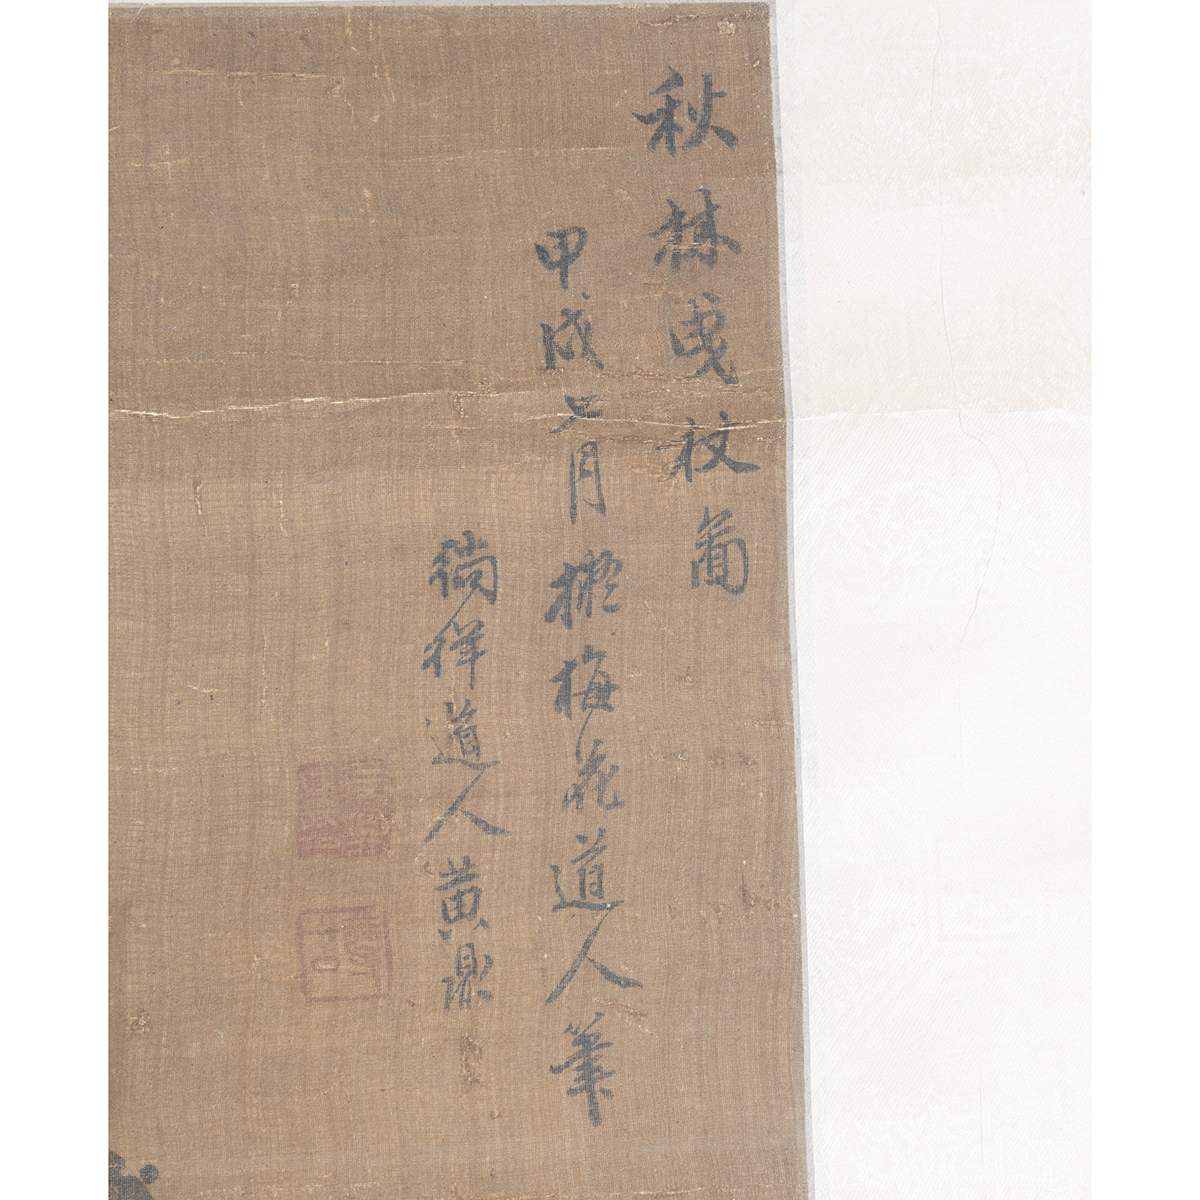 秋林曳杖圖
甲戌七月擬梅花道人筆
徜徉道人黃鼎